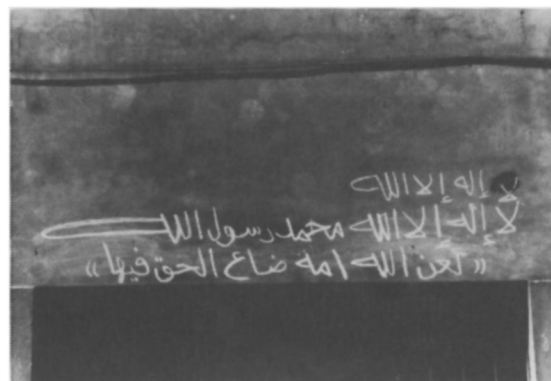 لا إله إلا الله
لا إله إلا الله محمد رسول الله
« لعن الله امة ضاع الحق فيها »